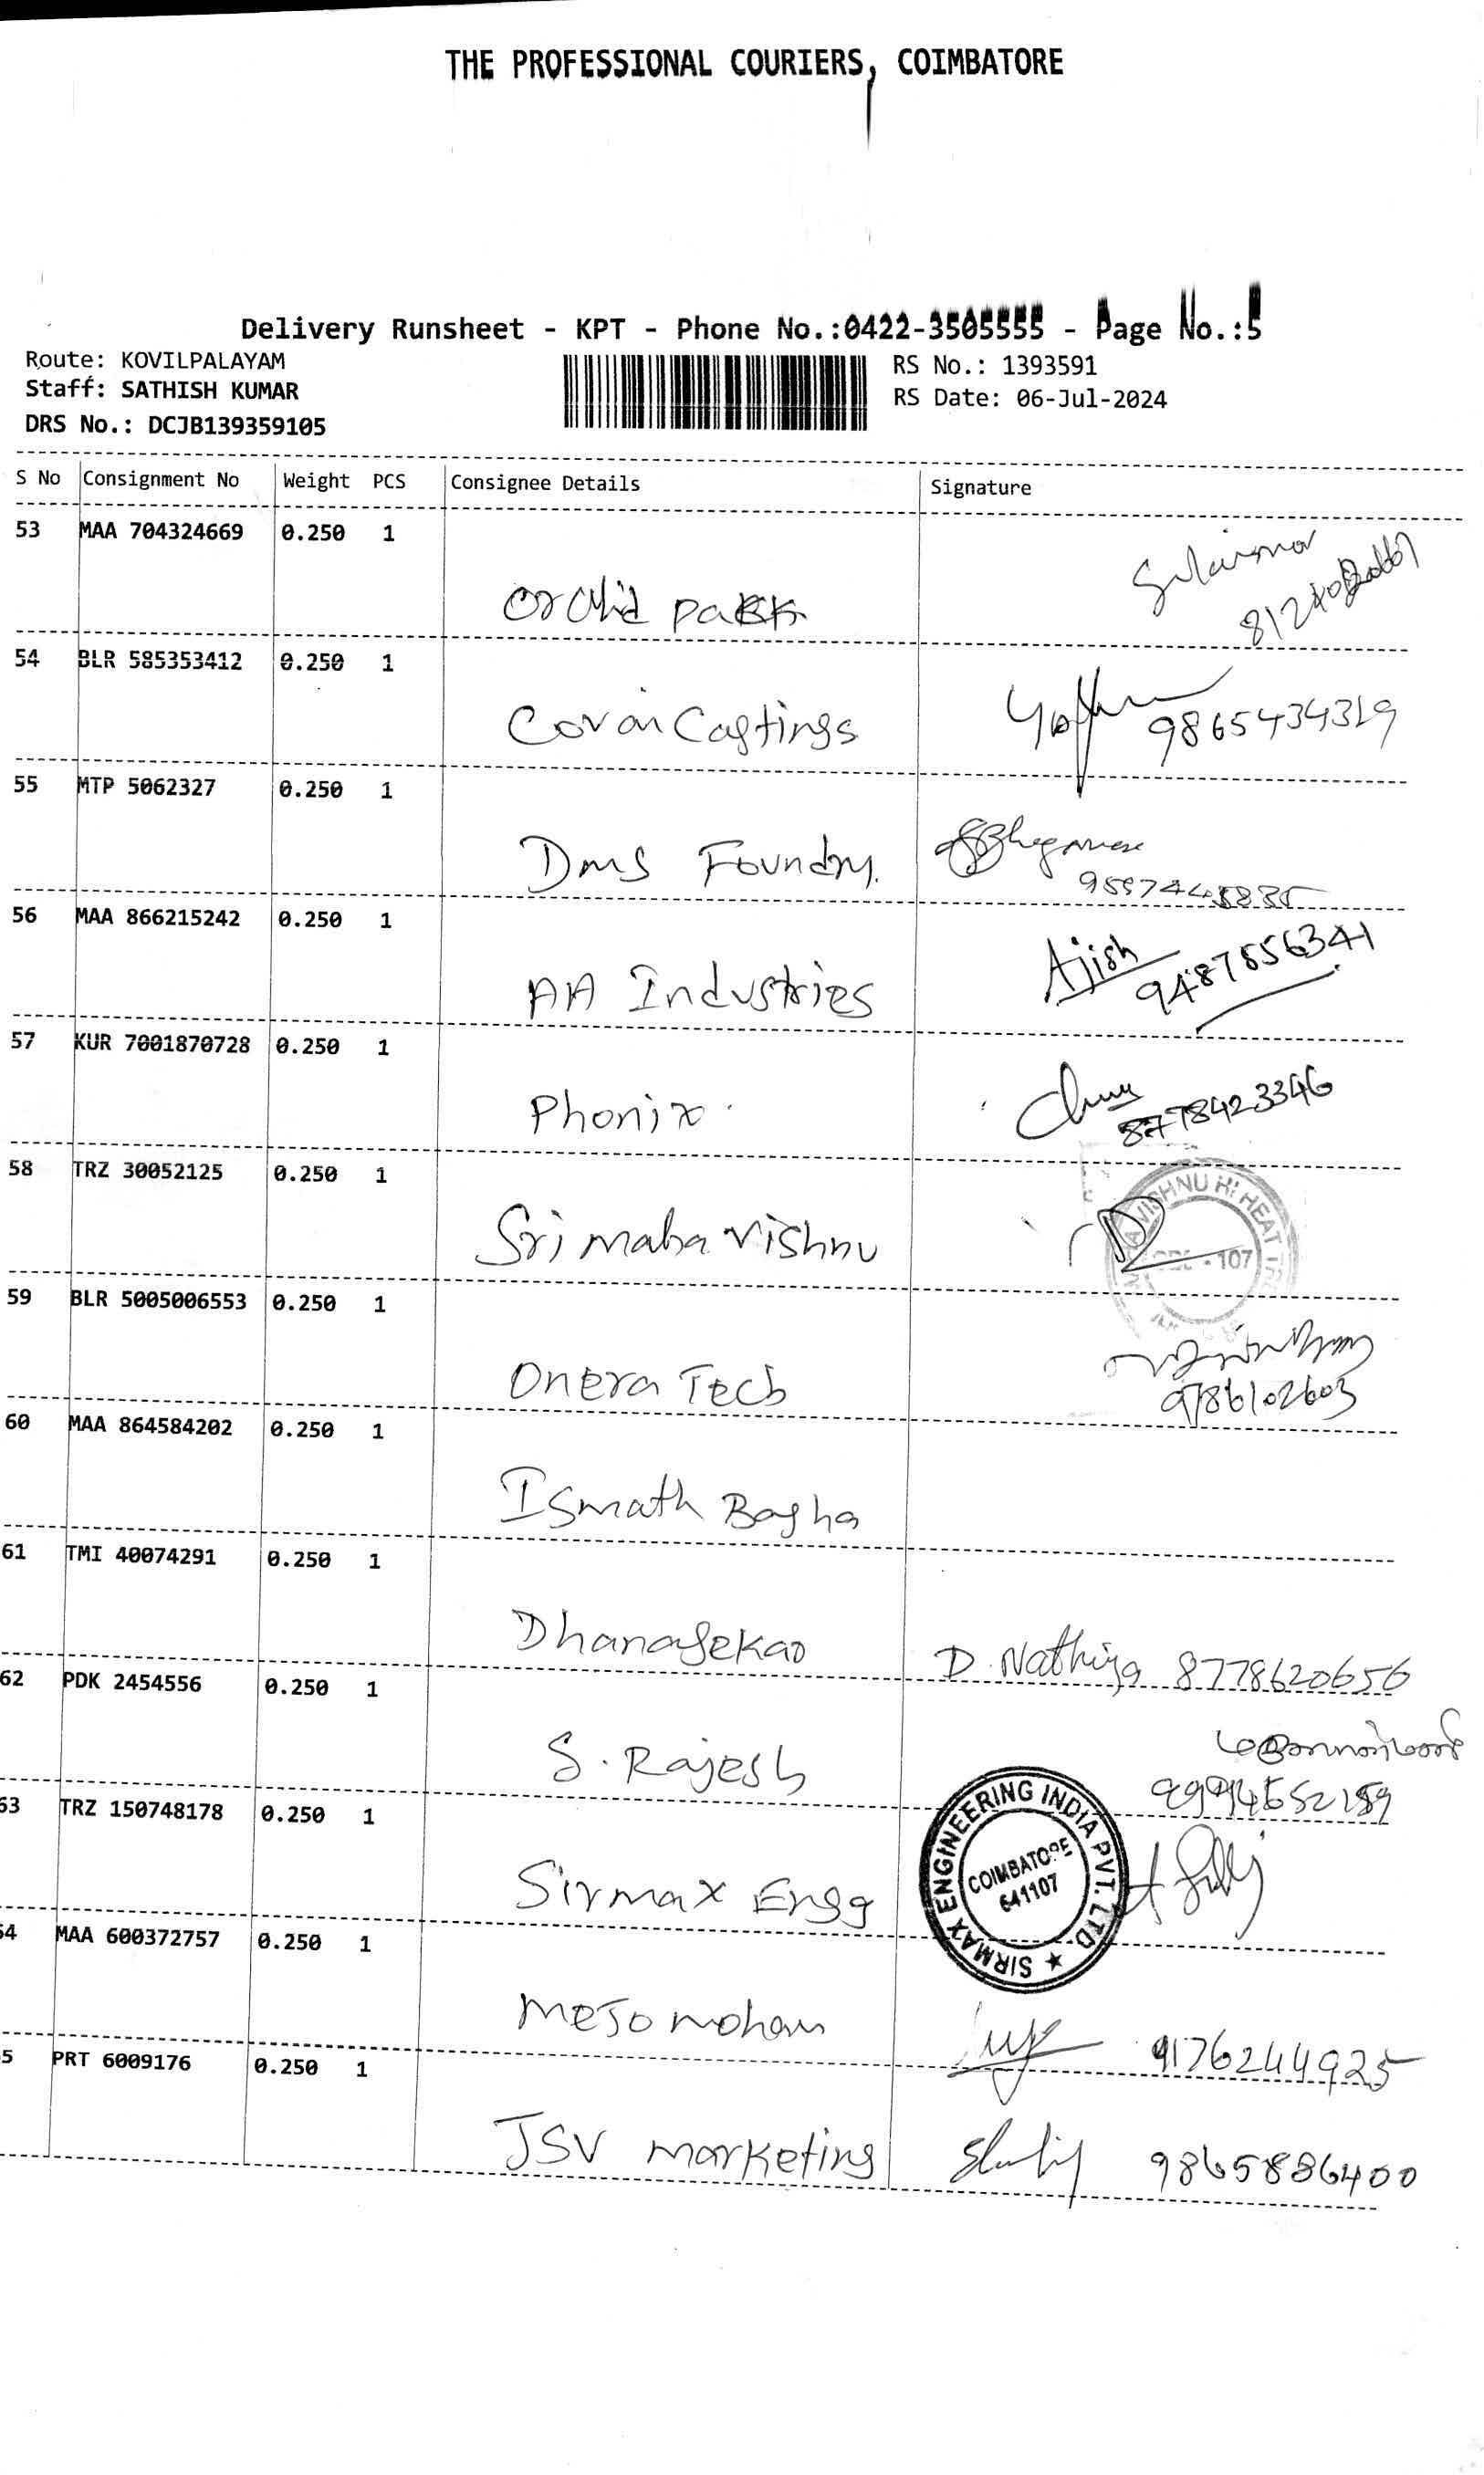 THE PROFESSIONAL COURIERS, COIMBATORE
Delivery Runsheet - KPT - Phone No.:0422-3505555 - Page No.:5
Route: KOVILPALAYAM
RS No.: 1393591
Staff: SATHISH KUMAR
RS Date: 06-Jul-2024
DRS No.: DCJB139359105
S No Consignment No Weight PCS Consignee Details Signature
53 MAA 704324669 0.250 1
Orchid Park
54 BLR 585353412 0.250 1
Covai Castings 9865434319
55 MTP 5062327 0.250 1
Dms Foundry.
56 MAA 866215242 0.250 1
AA Industries Ajish 9487856341
57 KUR 7001870728 0.250 1
Phonix 8778423346
58 TRZ 30052125 0.250 1
Sri maha vishnu
VISHNU HI HEAT 107
59 BLR 5005006553 0.250 1
Onera Tech 9786102603
60 MAA 864584202 0.250 1
Ismath Bagha
61 TMI 40074291 0.250 1
Dhanasekar D. Nathiya 8778620656
62 PDK 2454556 0.250 1
S. Rajesh
63 TRZ 150748178 0.250 1
Sirmax Engg
SIRMAX ENGINEERING INDIA PVT. LTD ★
COIMBATORE
641107
64 MAA 600372757 0.250 1
mejo mohan 9176244925
5 PRT 6009176 0.250 1
JSV marketing 9865886400